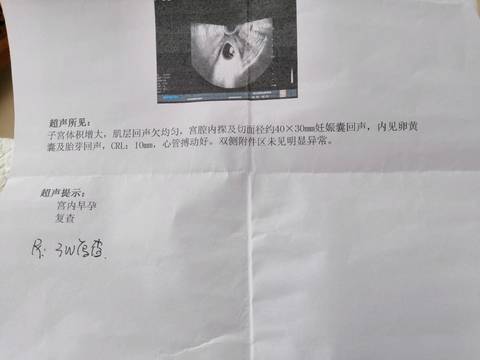 超声所见：
子宫体积增大，肌层回声欠均匀，宫腔内探及切面径约40×30mm妊娠囊回声，内见卵黄
囊及胎芽回声，CRL：10mm，心管搏动好。双侧附件区未见明显异常。
超声提示：
宫内早孕
复查
R: 3W复查